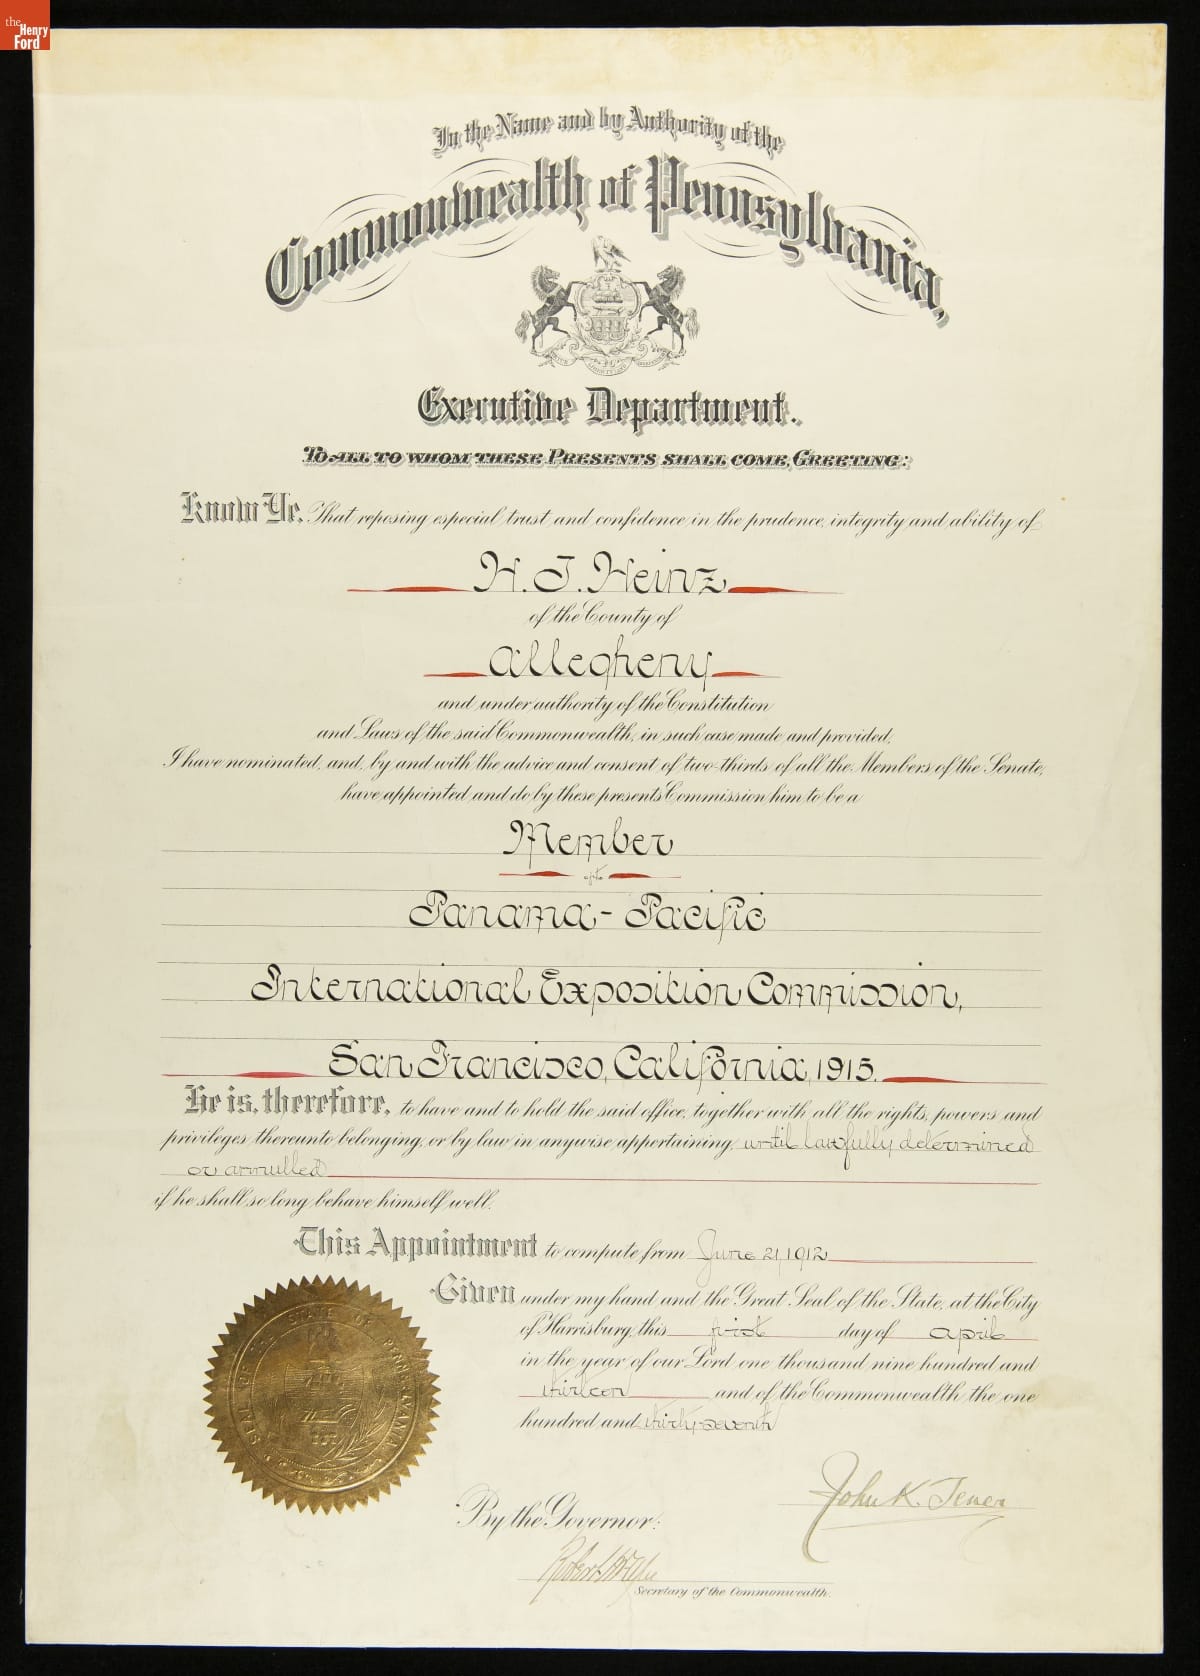 the
Henry
Ford
In the Name and by Authority of the
Commonwealth of Pennsylvania,
Executive Department.
To all to whom these Presents shall come, Greeting:
Know Ye, That reposing especial trust and confidence in the prudence, integrity and ability of
H. J. Heinz
of the County of
Allegheny
and under authority of the Constitution
and Laws of the said Commonwealth, in such case made and provided,
I have nominated, and, by and with the advice and consent of two-thirds of all the Members of the Senate,
have appointed and do by these presents Commission him to be a
Member
of the
Panama-Pacific
International Exposition Commission,
San Francisco, California, 1915.
He is, therefore, to have and to hold the said office, together with all the rights, powers and
privileges thereunto belonging, or by law in anywise appertaining, until lawfully determined
or annulled
if he shall so long behave himself well.
This Appointment to compute from June 21, 1912
Given under my hand and the Great Seal of the State, at the City
of Harrisburg, this first day of April
in the year of our Lord one thousand nine hundred and
thirteen and of the Commonwealth the one
hundred and thirty-seventh
SEAL OF THE STATE OF PENNSYLVANIA
John K. Tener
By the Governor:
Secretary of the Commonwealth.